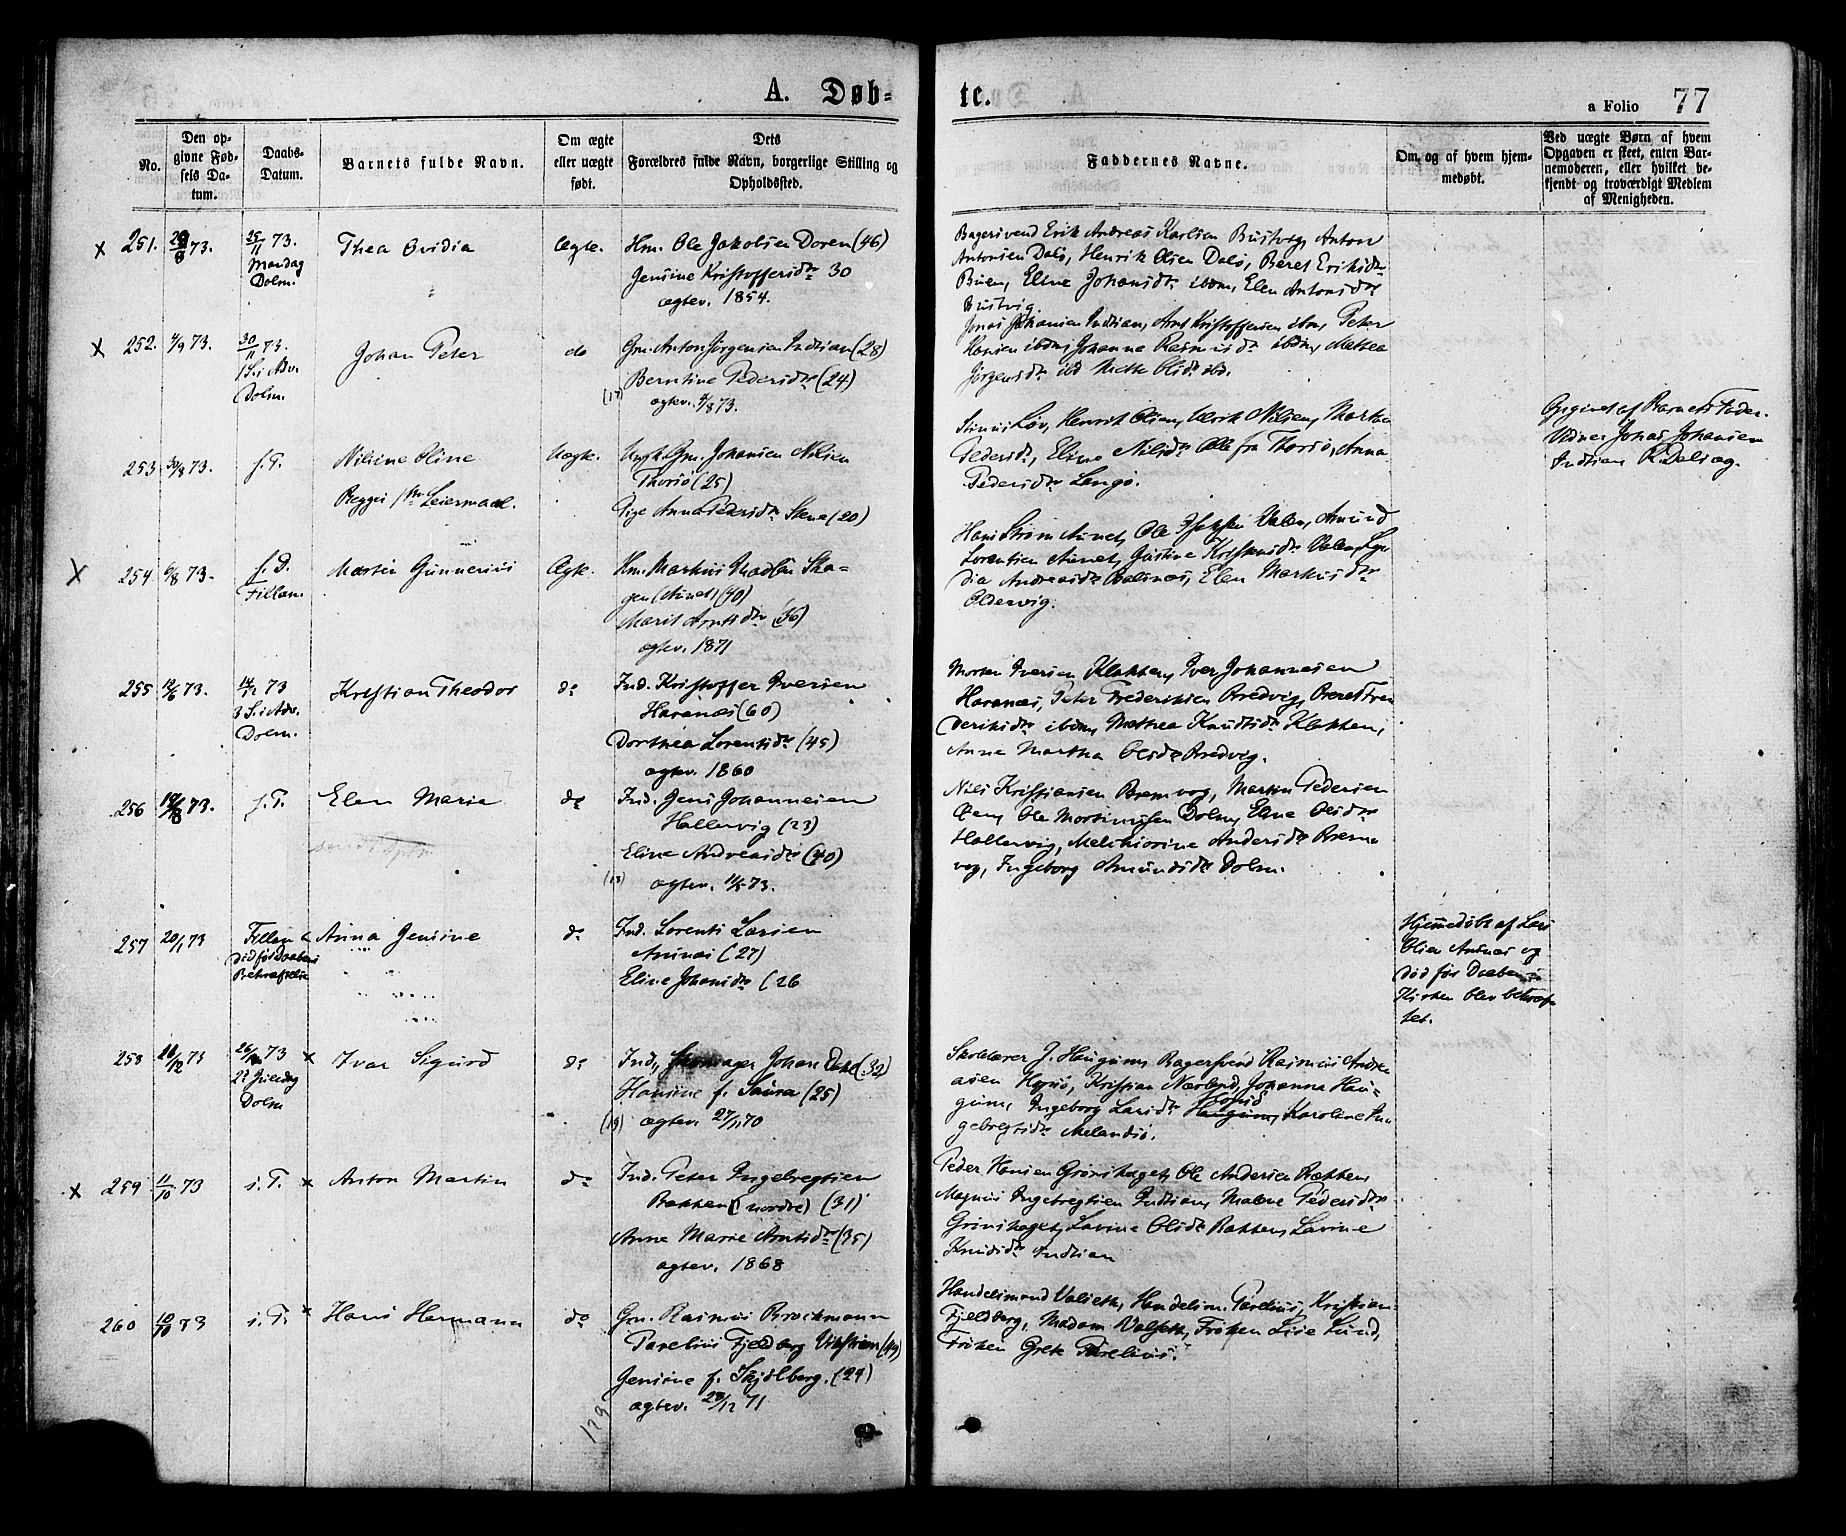 A. Døb-
te.
a Folio 77
No.
Den op-
givne Fød-
sels Da-
tum.
Daabs-
Datum.
Barnets fulde Navn.
Om ægte
eller uægte
født.
Dets
Forældres fulde Navn, borgerlige Stilling og
Opholdssted.
Faddernes Navne.
Om, og af hvem hjem-
medøbt.
Ved uægte Børn af hvem
Opgaven er skeet, enten Bar-
nemoderen, eller hvilket be-
kjendt og troværdigt Medlem
af Menigheden.
x 251. 73.
25/11 73.
Mandag
Dolm.
Thea Ovidia
Ægte.
Hm. Ole Jakobsen Doren (46)
Jensine Kristoffersdtr 30
ægtev. 1854.
Bagersvend Erik Andreas Karlsen Bustvig, Anton
Antonsen Dalø, Henrik Olsen Dalø, Beret Eriksdtr
Buen, Eline Johansdtr ibdm, Elen Antonsdtr
Bustvig
x 252. 4/9 73.
30/11 73.
1 S. i Adv.
Dolm.
Johan Peter
do
Gm. Anton Jørgensen Indian (28)
Berntine Pedersdtr (24)
(17)
ægtev. 4/8 73.
Jonas Johansen Indian, Arnt Kristoffersen ibm, Peter
Hansen ibdm, Johanna Rasmusdtr ibdm, Mathea
Jørgensdtr ibd Mette Olsdtr ibd.
253 30/3 73.
s. T.
Nilsine Oline
Begges 1ste Leiermaal.
Uægte.
Ungk. Gm. Johansen Nilsen
Thorsø (25)
Pige Anna Pedersdtr Stene (20)
Løv, Henrik Olsen, Ulrik Nilsen, Martha
Pedersdtr, Eline Nilsdtr Alle fra Thorsø, Anna
Pedersdtr Lengø.
Opgivet af Barnets Fader.
Vidner Johas Johansen
Indian
x 254 6/8 73.
s. D.
Fillan.
Martin Gunnerius
Ægte.
Hm. Markus Ska-
gen (Aunet) (40)
Marit Arntsdtr (36)
ægtev. 1871
Hans Strøm Aunet, Ole Valen, Amund
Lorentsen Aunet, Gustine Valen,
dia Andreasdtr Balsnes, Elen Markusdtr
Oldervig.
255 12/6 73.
14/12 73
3 S. i Adv.
Dolm.
Kristian Theodor
do
Ind. Kristoffer Iversen
Havnæs (60)
Dorthea Lorentsdtr (45)
ægtev. 1860
Morten Iversen Klakken, Iver Johannesen
Havnæs, Peter Frederiksen Bredvig, Beret Fre
deriksdtr ibdm, Mathea Knudtsdtr Klakken,
Anne Martha Olsdtr Bredvig.
256 19/8 73.
s. T.
Elen Marie
do
Ind. Jens Johannesen
Hallervig (23)
Eline Andreasdtr (40)
(18)
ægtev. 11/5 73.
Nils Kristiansen Bremvog, Martin Pedersen
Ole Mortensen Dolm, Eline Olsdtr
Hallervig, Melchiorine Andersdtr Brem
vog, Ingeborg Amundsdtr Dolm.
257 20/1 73
Fillan
død før Daabens
Bekræftelse
Anna Jensine
do
Ind. Lorents Larsen
(27)
Eline Johansdtr (26
Hjemmedøbt af Lars
Olsen og
død før Daaben i
Kirken blev bekræf
tet.
258 73
26/12 73
2d Juledag
Dolm
x Ivar Sigurd
do
Ind, Skomager Johan (32)
Hansine f. Saura (25)
(19) ægtev. 27/11 70
Skolelærer J. Haugum, Bagersvend Rasmus Andre
asen Hopsø, Kristian Nærland, Johanna Hau-
gum, Ingeborg Larsdtr Haugum, Karoline In
gebregtsdtr Melandsø.
x 259 11/10 73
s. T.
x Anton Martin
do
Ind. Peter Ingebregtsen
Bakken (nordre) (31)
Anne Marie Arntsdtr (35)
ægtev. 1868
Peder Hansen Grønskaget, Ole Andersen Bakken,
Magnus Ingebregtsen Indian, Malene Pedersdtr
Grønskaget, Lavine Olsdtr Bakken, Lavine
Knudsdtr Indian
260 10/10 73
s. T.
x Hans Hermann
do
Gm. Rasmus Brochmann
Parelius Fjeldberg (49)
Jensine f. Skjølberg. (29)
ægtev. 28/12 71
129
Handelsmand Valseth, Handelsm. Parelius, Kristian
Fjeldberg, Madam Valseth, Frøken Lise Lund,
Frøken Grete Parelius.